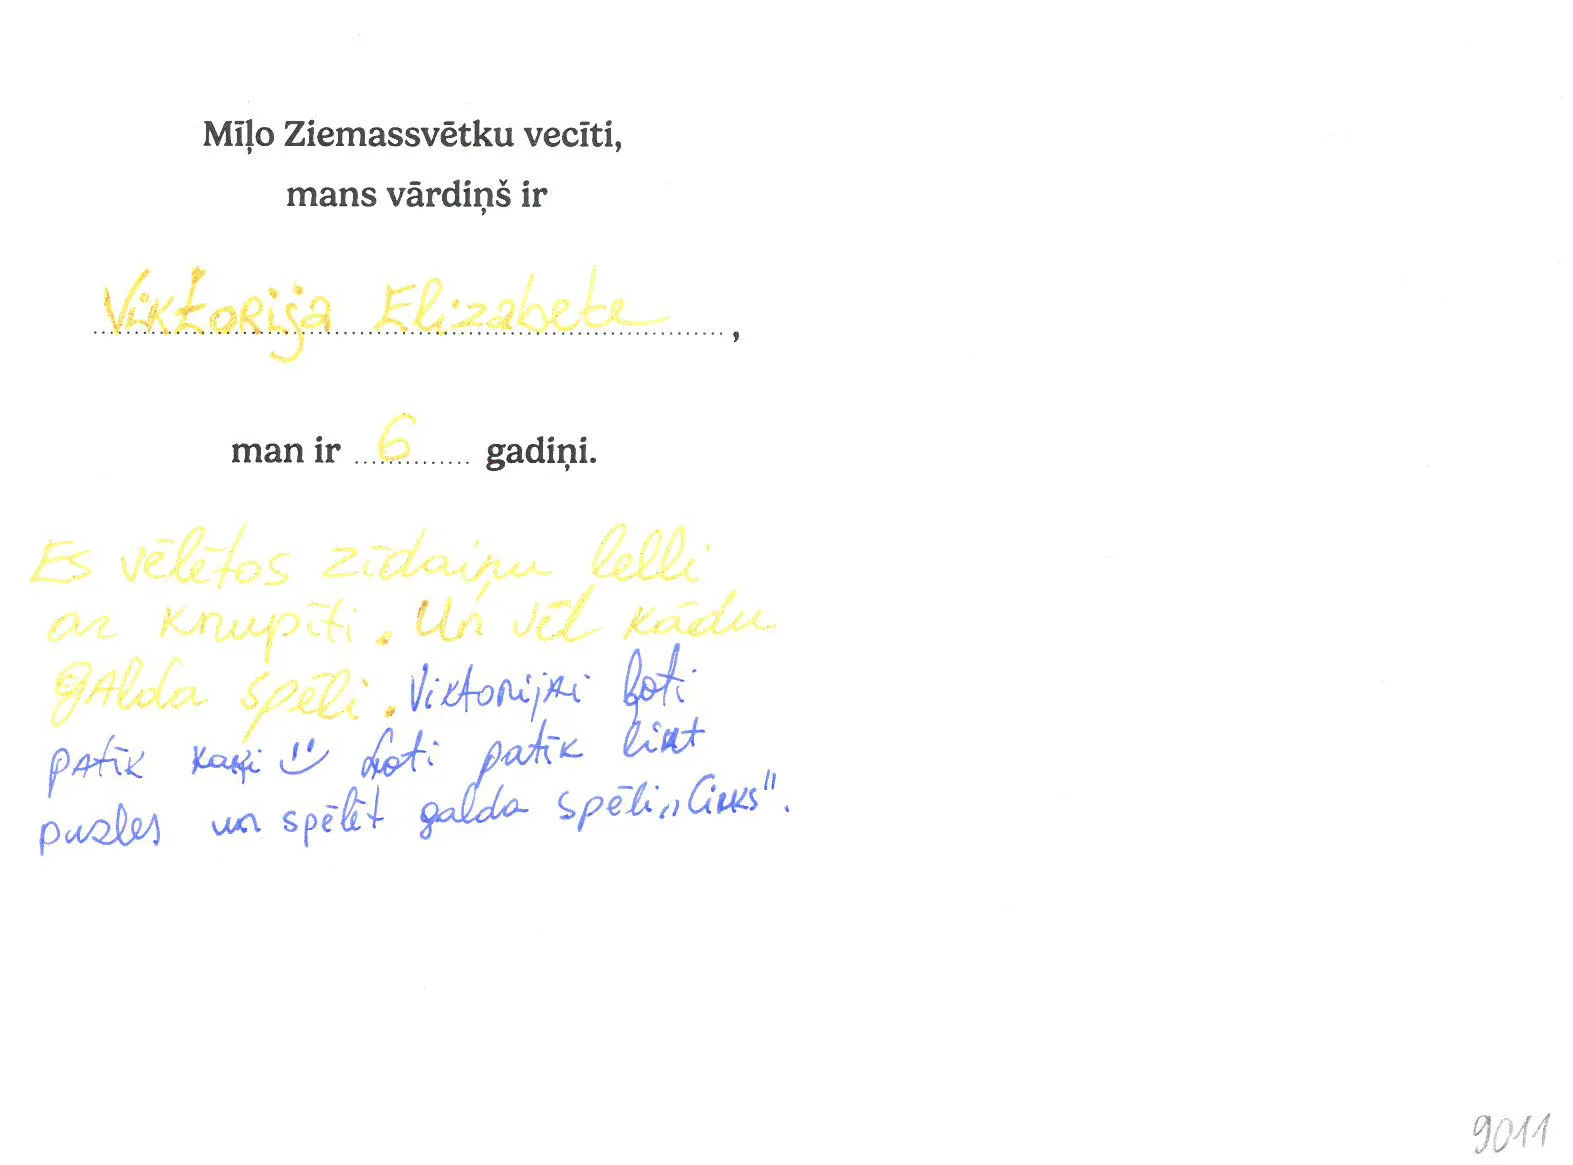 Mīļo Ziemassvētku vecīti,
mans vārdiņš ir
Viktorija Elizabete,
man ir 6 gadiņi.
Es vēlētos zīdaiņu lelli
ar knupīti. Un vēl kādu
galda spēli. Viktorijai ļoti
patīk kaķi ¨⌣ ļoti patīk likt
puzles un spēlēt galda spēli „Cirks".
9011